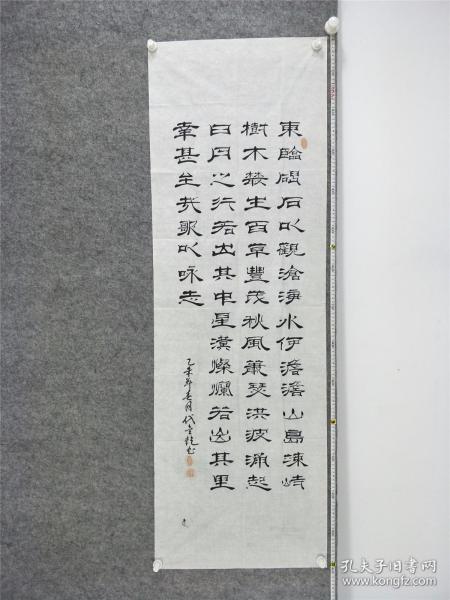 東臨碣石以觀滄海水何澹澹山島竦峙
樹木叢生百草豐茂秋風蕭瑟洪波涌起
日月之行若出其中星漢燦爛若出其里
幸甚至哉歌以咏志
乙未年春月代书
孔夫子旧书网
www.kongfz.com